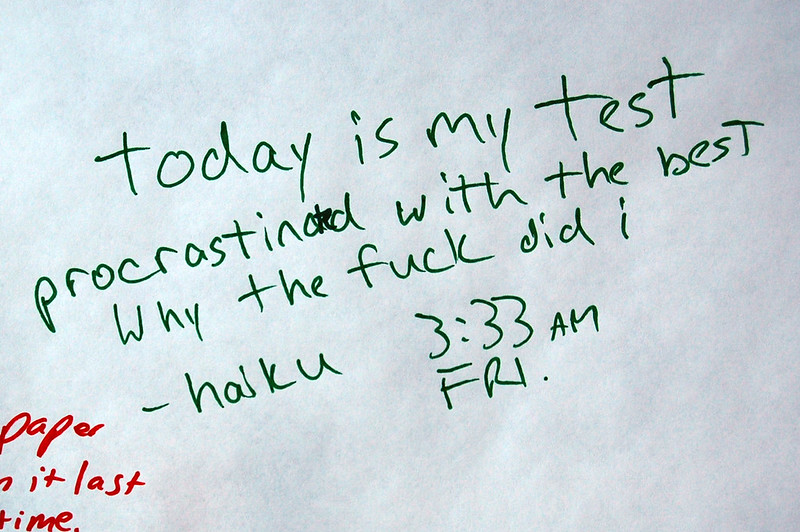 today is my test
procrastinated with the best
Why the fuck did i
- haiku
3:33 AM
FRI.
paper
it last
time.